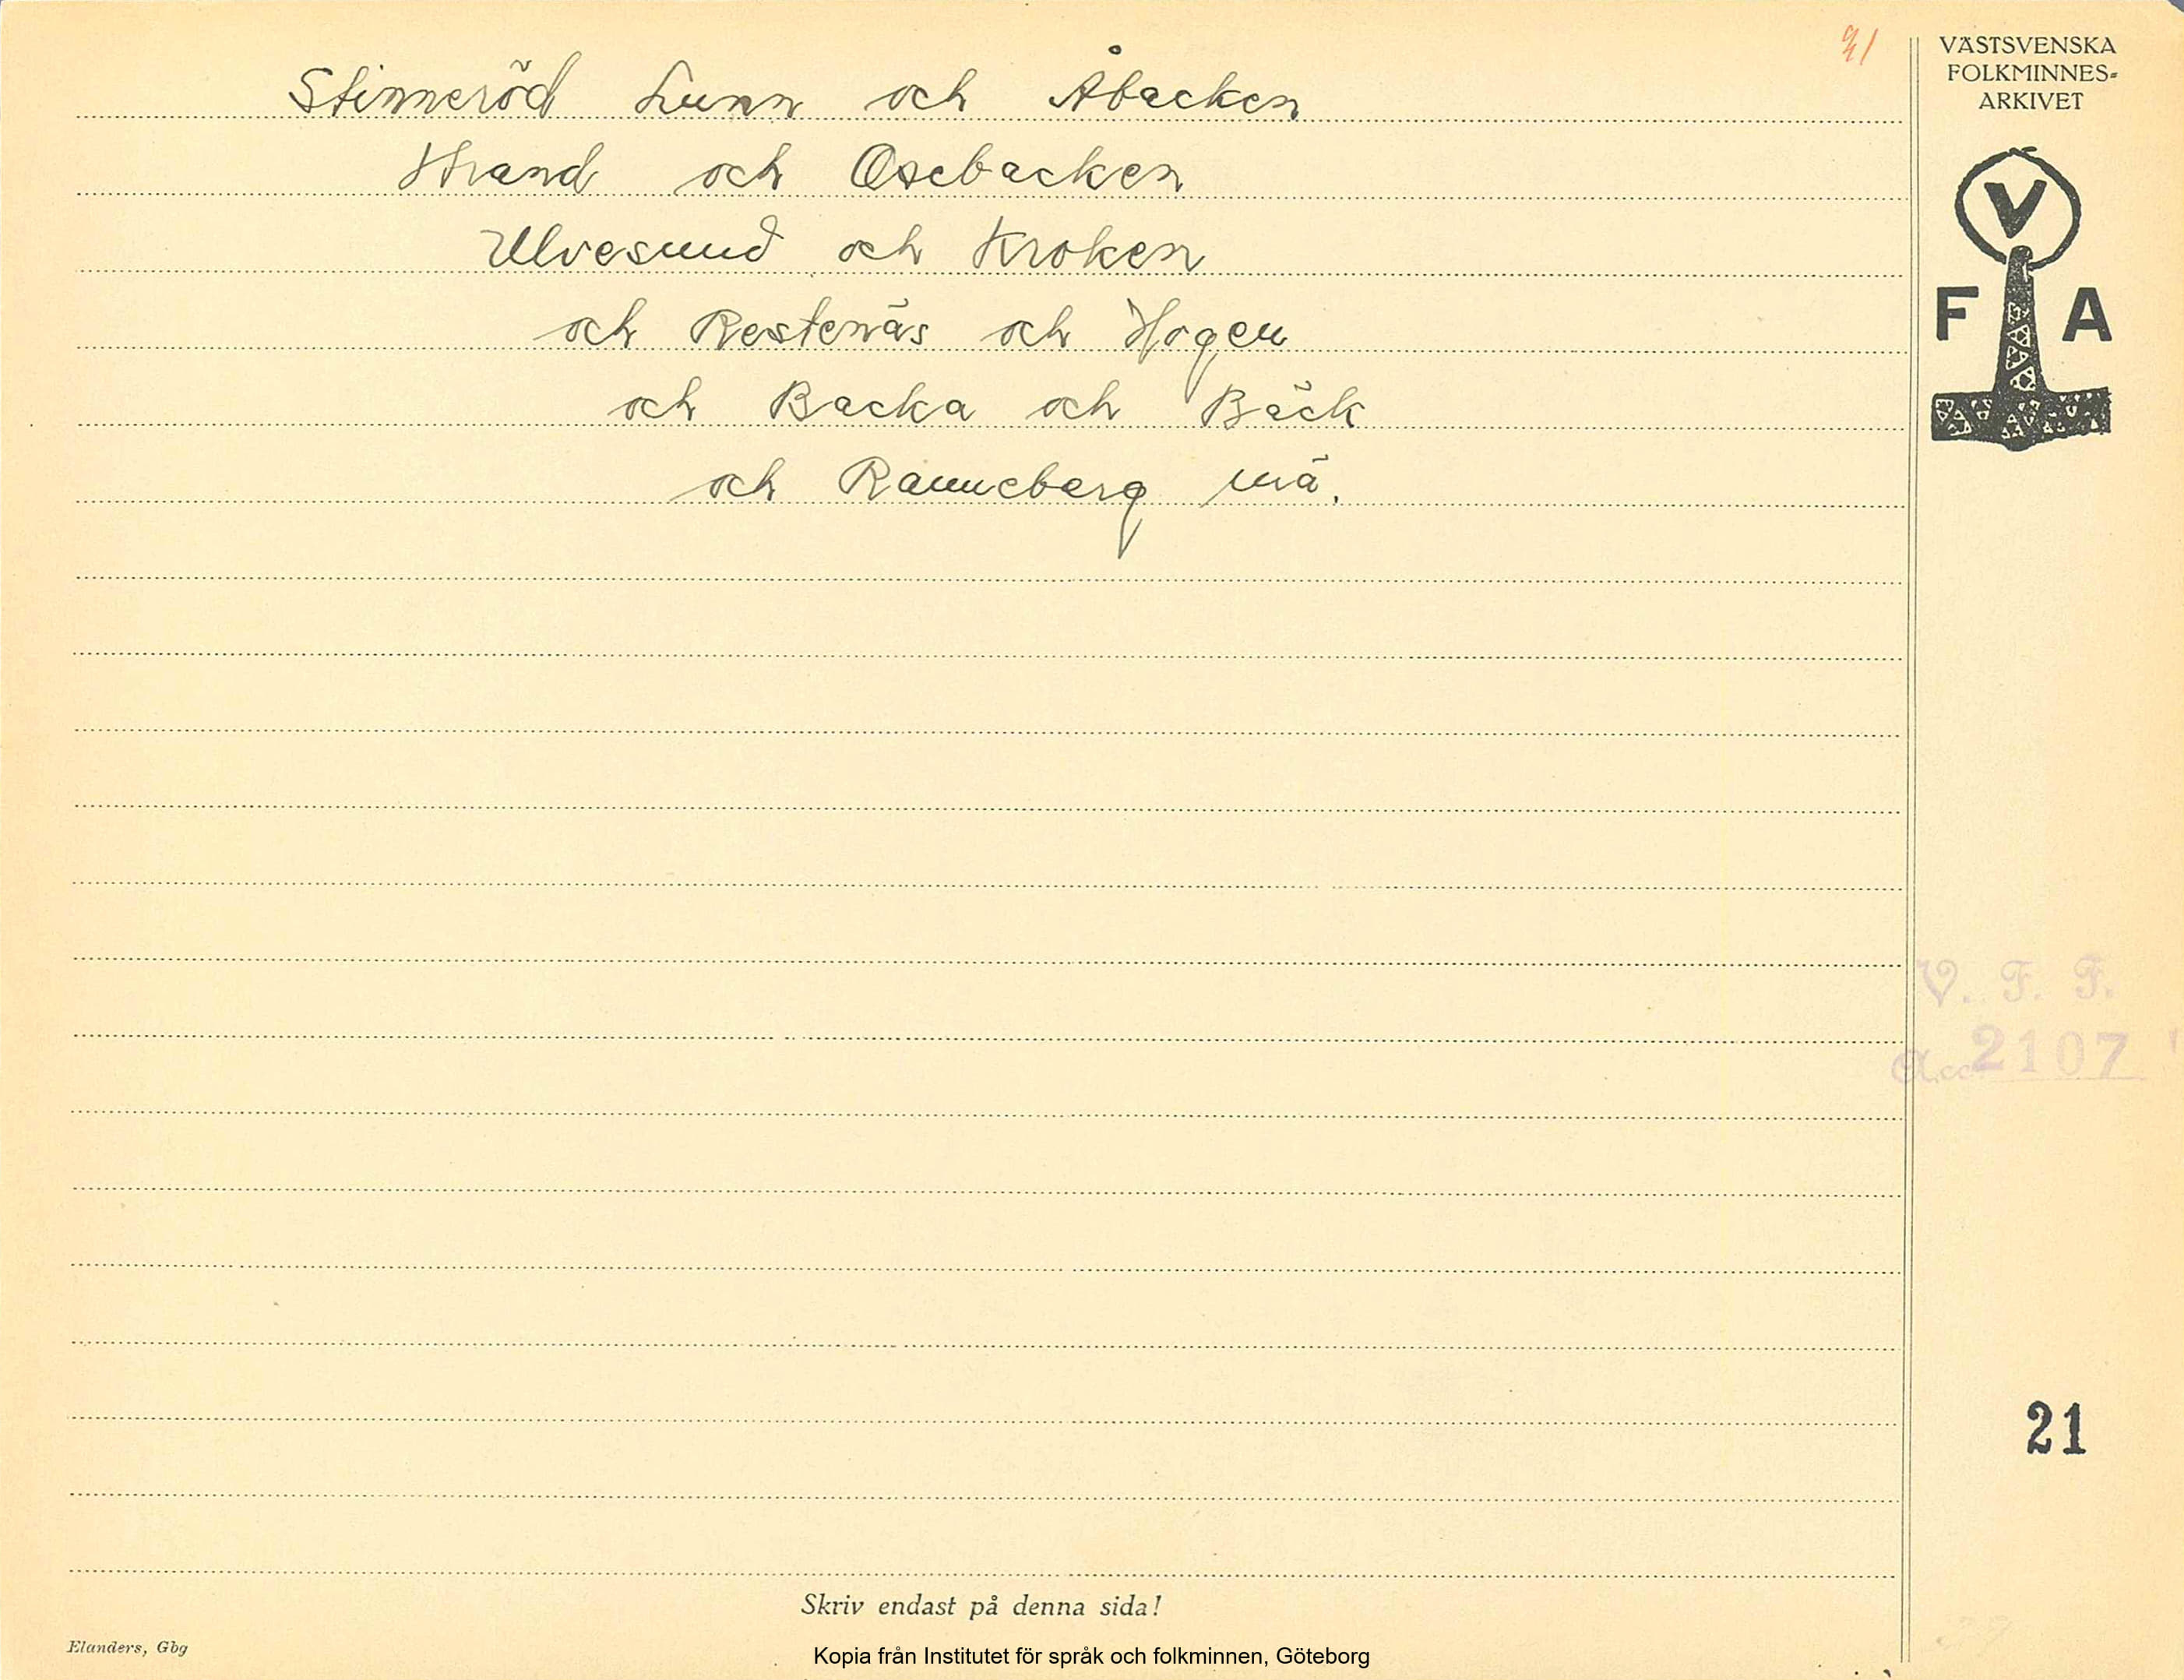 Stinneröd Lunn och Åbacken
Strand och Åsebacken
Ulvesund och Kroken
och Restenäs och Hogen
och Backa och Bäck
och Ranneberg mä.
VÄSTSVENSKA
FOLKMINNES-
ARKIVET
V
F A
V. F. F.
Acc 2107
21
Skriv endast på denna sida!
Elanders, Gbg
Kopia från Institutet för språk och folkminnen, Göteborg